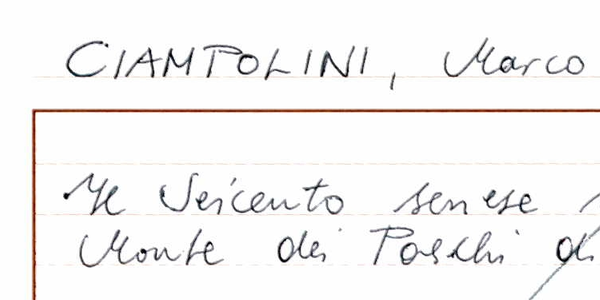 CIAMPOLINI, Marco
Il Seicento senese
Monte dei Paschi di